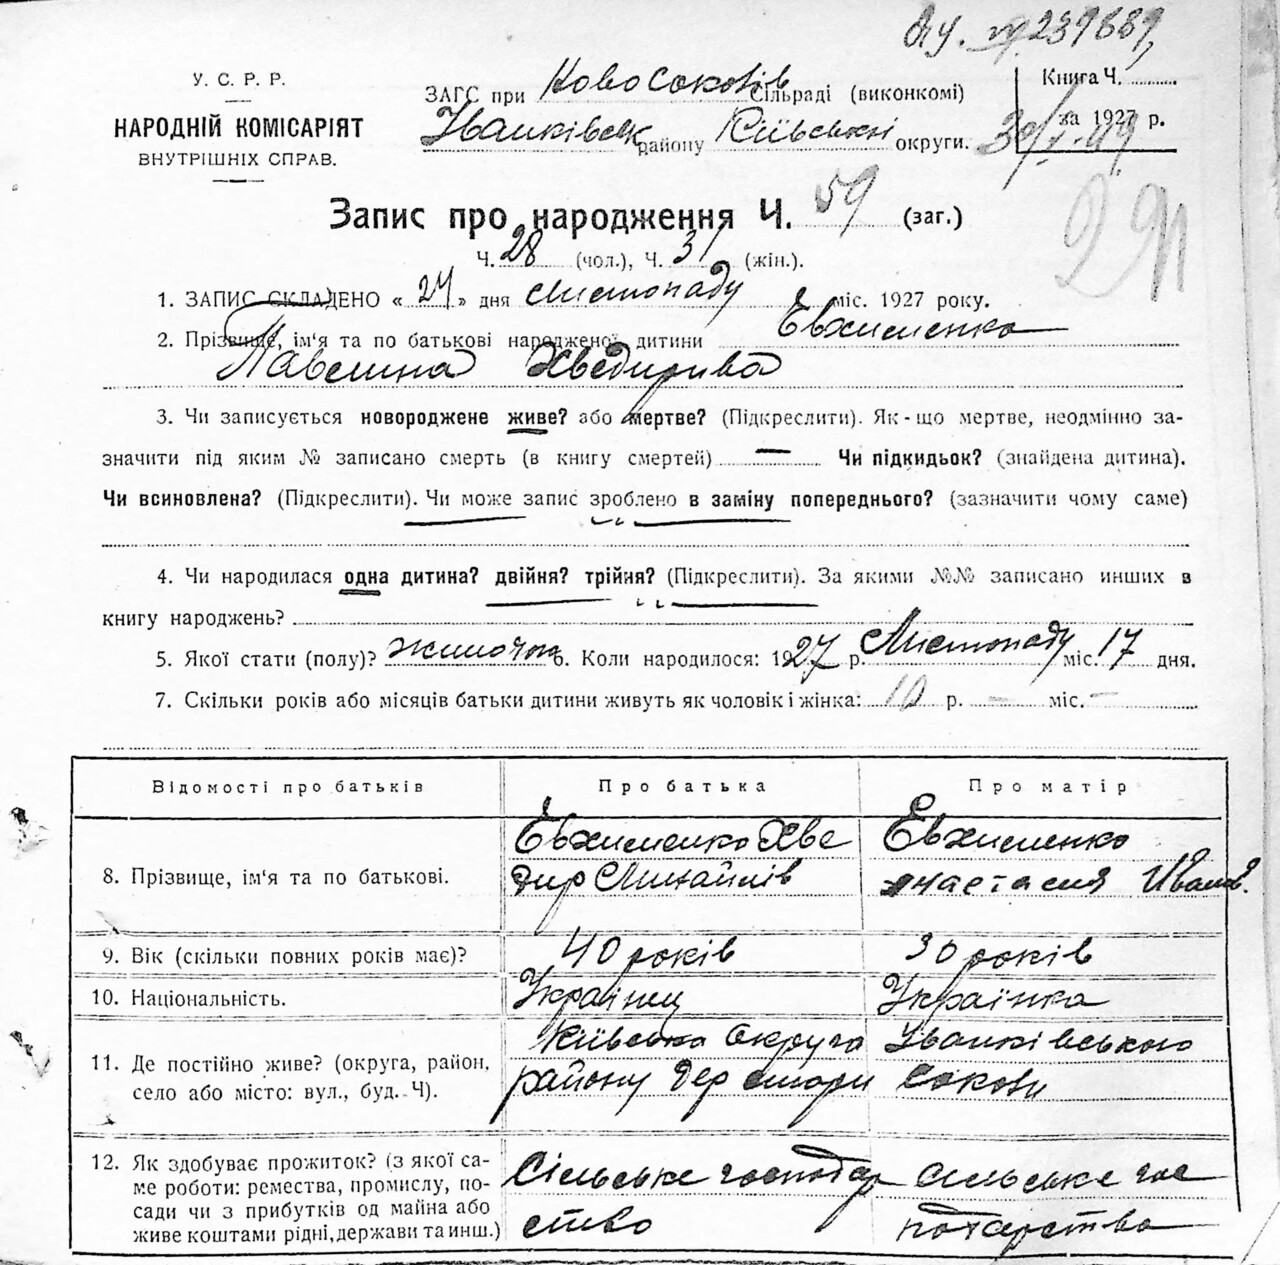 У. С. Р. Р.
НАРОДНІЙ КОМІСАРІЯТ
ВНУТРІШНІХ СПРАВ.
ЗАГС при Новосоковів Сільраді (виконкомі)
Іванківськ району Київські округи.
Книга Ч.
за 1927 р.
Запис про народження Ч. 59 (заг.)
Ч. 28 (чол.), Ч. 31 (жін.).
1. ЗАПИС СКЛАДЕНО « 27 » дня Листопаду міс. 1927 року.
2. Прізвище, ім'я та по батькові народженої дитини Евхименко
Павлина Хведирива
3. Чи записується новороджене живе? або мертве? (Підкреслити). Як-що мертве, неодмінно за-
значити під яким № записано смерть (в книгу смертей) — Чи підкидьок? (знайдена дитина).
Чи всиновлена? (Підкреслити). Чи може запис зроблено в заміну попереднього? (зазначити чому саме)
4. Чи народилася одна дитина? двійня? трійня? (Підкреслити). За якими №№ записано инших в
книгу народжень?
5. Якої стати (полу)? жиночою 6. Коли народилося: 1927 р. Листопаду міс. 17 дня.
7. Скільки років або місяців батьки дитини живуть як чоловік і жінка: 10 р. — міс. —
Відомості про батьків Про батька Про матір
8. Прізвище, ім'я та по батькові. Евхименко Хве Евхименко
дир Михайлів Настасия Иванов.
9. Вік (скільки повних років має)? 40 років 30 років
10. Національність. Українец Українка
11. Де постійно живе? (округа, район, Київська Округа Іванківського
село або місто: вул., буд. Ч). району дер стари Сокови
12. Як здобуває прожиток? (з якої са- Сільське господар сильське гос
ме роботи: ремества, промислу, по- ство подарство
сади чи з прибутків од майна або
живе коштами рідні, держави та инш.)